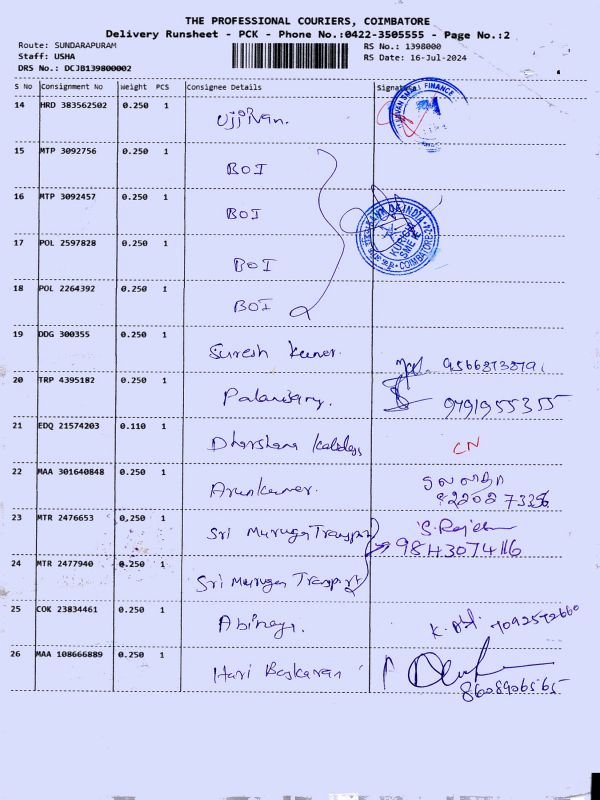 THE PROFESSIONAL COURIERS, COIMBATORE
Delivery Runsheet - PCK - Phone No.:0422-3505555 - Page No.:2
Route: SUNDARAPURAM
Staff: USHA
DRS No.: DCJB139800002
RS No.: 1398000
RS Date: 16-Jul-2024
S No Consignment No Weight PCS Consignee Details Signature
14 HRD 383562502 0.250 1 Ujjivan.
15 MTP 3092756 0.250 1 BOI
16 MTP 3092457 0.250 1 BOI
17 POL 2597828 0.250 1 BOI
18 POL 2264392 0.250 1 BOI
KURICHI
SME
COIMBATORE
19 DDG 300355 0.250 1 Suresh Kumar.
20 TRP 4395182 0.250 1 Palanisamy. 9791955355
21 EDQ 21574203 0.110 1 Dharshana CN
22 MAA 301640848 0.250 1 Arunkumar.
23 MTR 2476653 0.250 1 Sri Muruga Transport S. 9843074116
24 MTR 2477940 0.250 1 Sri Muruga Transport
25 COK 23834461 0.250 1 Abinaya. 7092592660
26 MAA 108666889 0.250 1 Hari Baskaran 8608906565